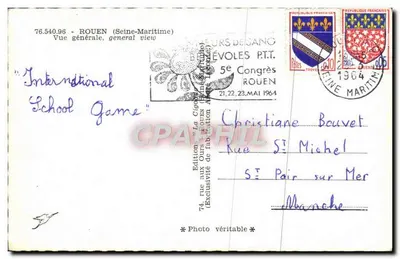 76.540.96 - ROUEN (Seine-Maritime)
Vue générale. general view
"International
School Game"
URS DE SANG
ÉVOLES P.T.T.
5e Congrès
ROUEN
21, 22, 23, MAI 1964
1964
SEINE MARITIME
Edition
74, rue aux Ours
(Exclusivité de fabrication
CPAPHIL
Christiane Bouvet
Rue St Michel
St Pair sur Mer
Manche
* Photo véritable *